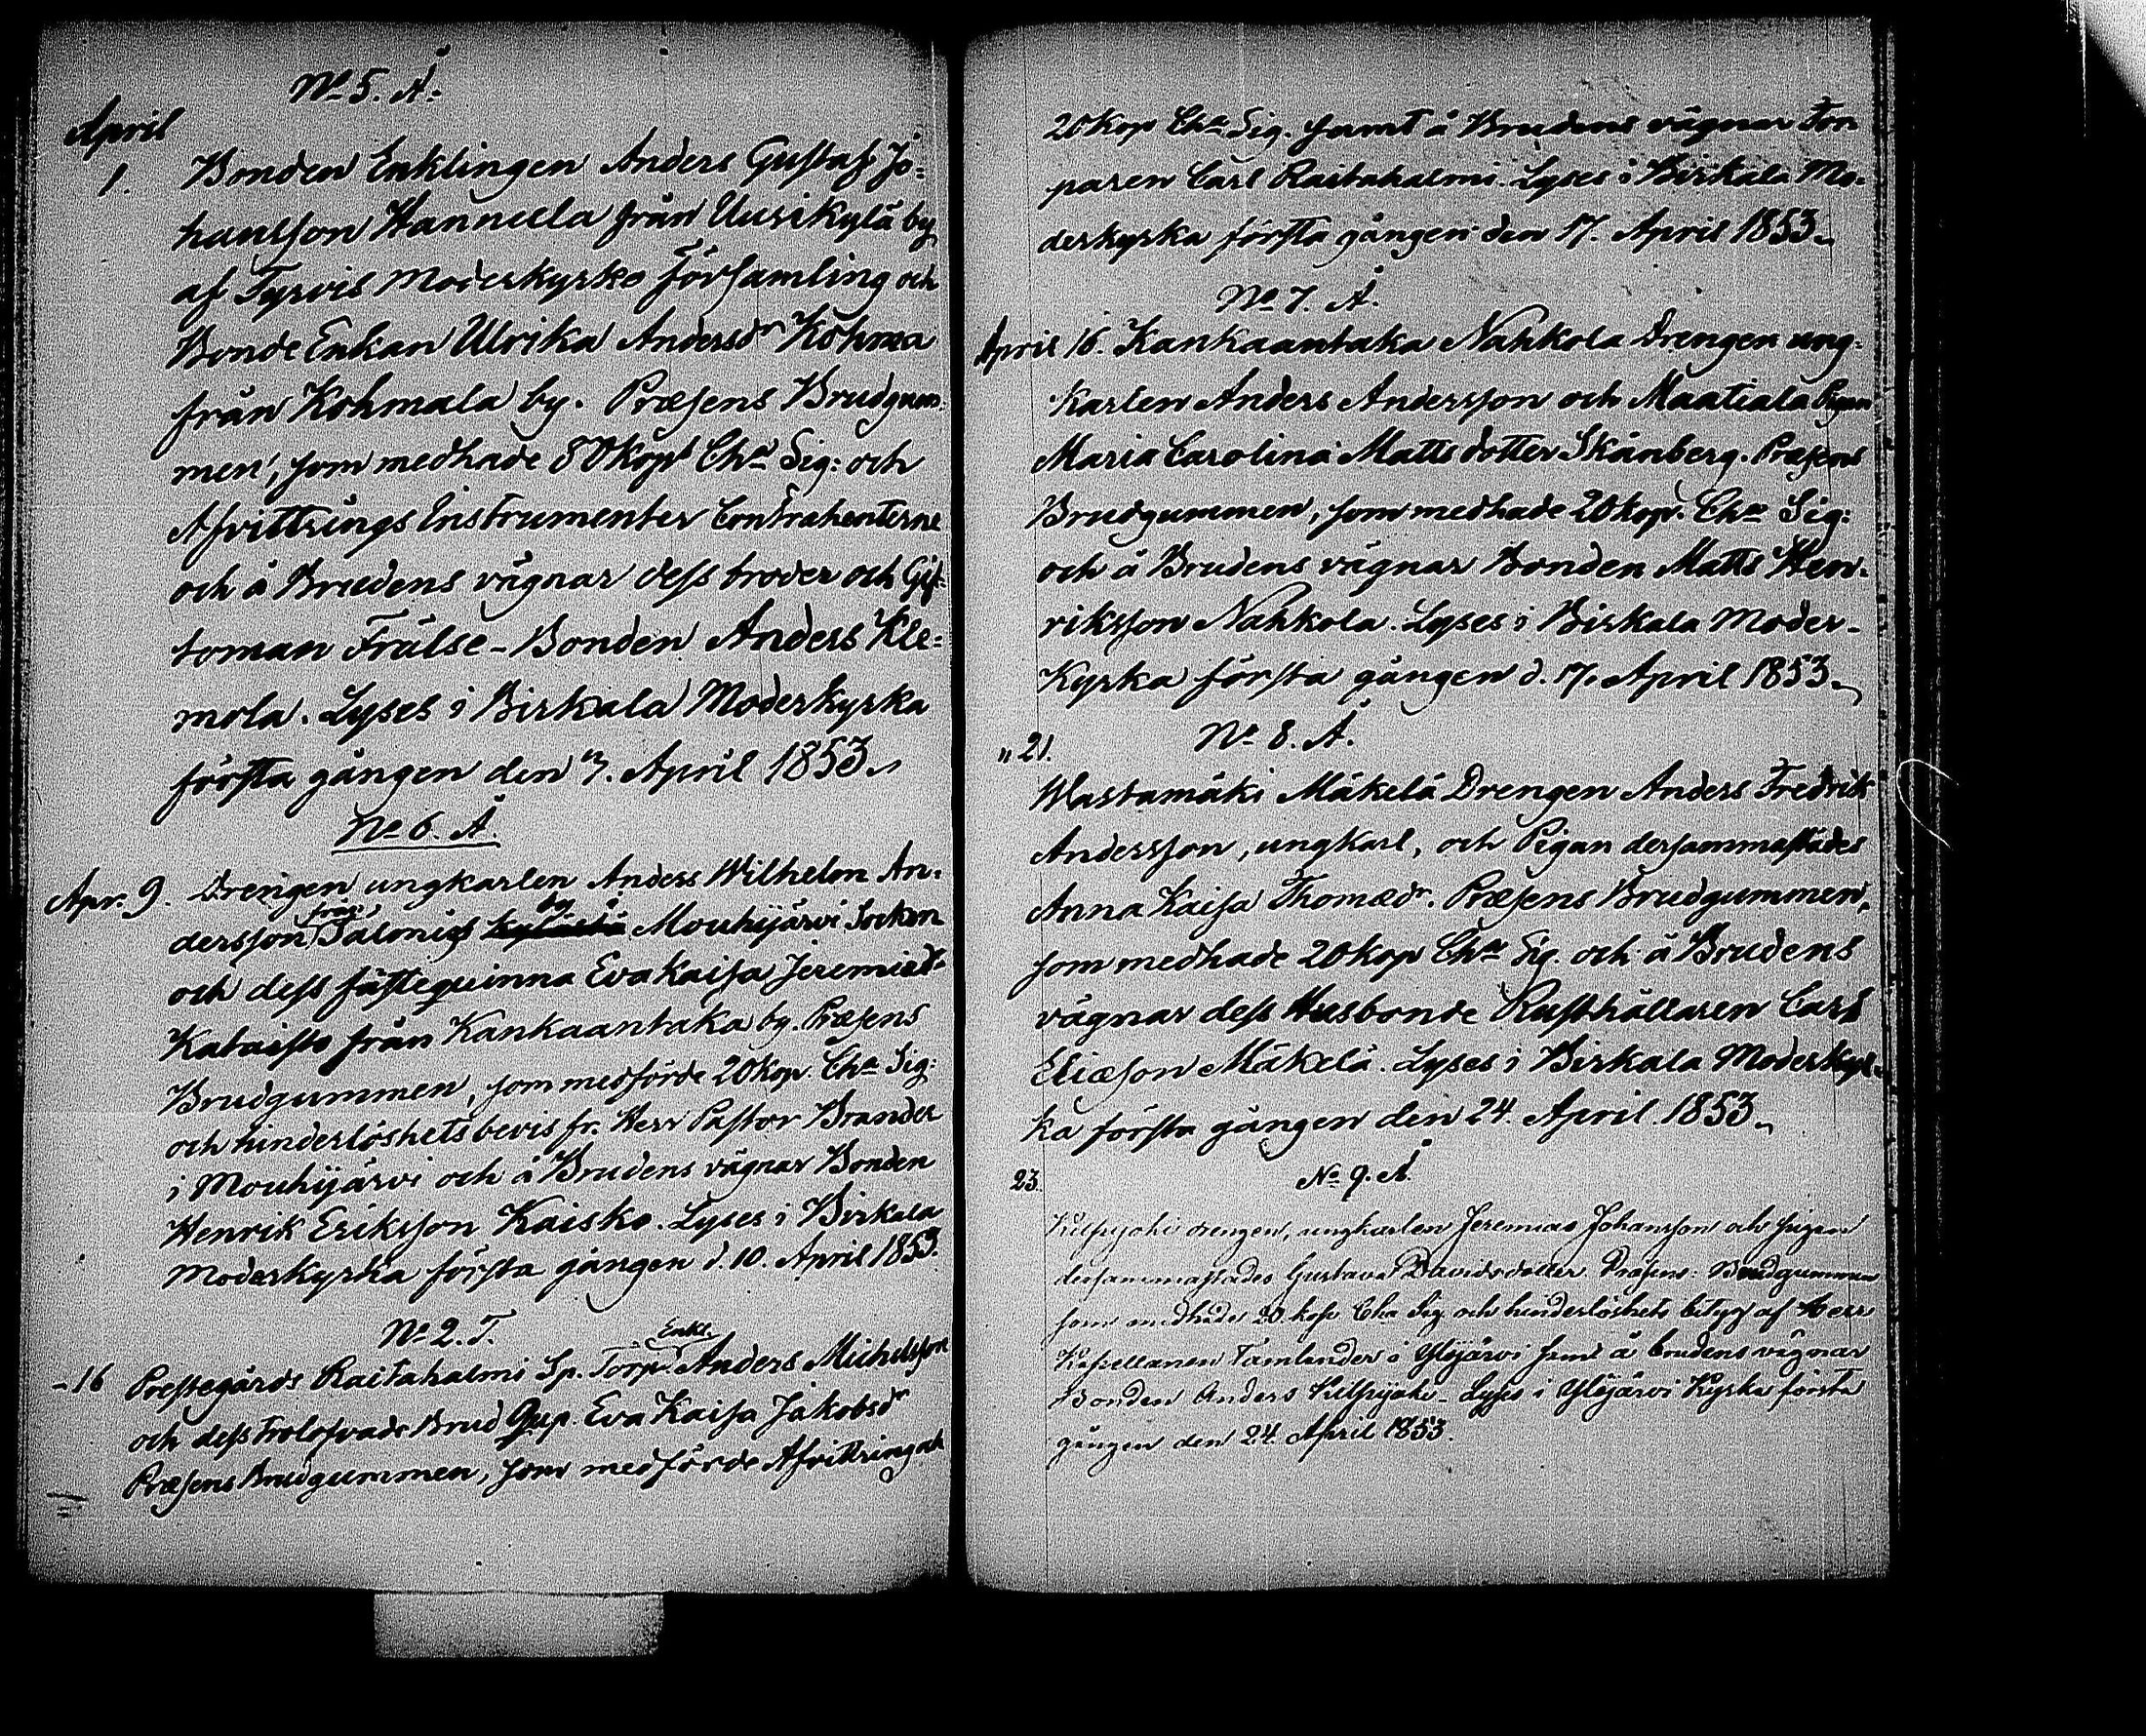 No 5. Å.
April
1. Bonden Enklingen Anders Gustaf Jo=
hansson Hannula från Uusikylä by
af Tyrvis Moderkyrko Församling och
Bonde Enkan Ulrika Andersdr Kohma
från Kohmala by. Præsens Brudgum-
men, som medhade 80 kop Cha Sig: och
Afvittrings Instrumenter Contrahenterne
och å Brudens vägnar dess broder och Gif-
toman Frälse-Bonden Anders Kle=
mola. Lyses i Birkala Moderkyrka
första gången den 3. April 1853.
No 6. Å.
Apr. 9. Drengen ungkarlen Anders Wilhelm An-
dersson från Salonis by i Mouhijärvi Socken
och dess fästeqvinna Eva Kaisa Jeremiæd.
Kataisto från Kankaantaka by. Præsens
Brudgummen, som medförde 20 kop. Cha Sig:
och hinderlöshetsbevis fr. Herr Pastor Brander
i Mouhijärvi och å Brudens vägnar Bonden
Henrik Eriksson Kaisko. Lyses i Birkala
Moderkyrka första gången d. 10. April 1853.
No 2. T.
-16 Prestegårds Raitahalmi Sp. Torp. Enkl. Anders Michelsson
och dess trolofvade Brud Eva Kaisa Jakobsdr
Præsens Brudgummen, som medförde Afvittring och
20 kop Cha Sig. samt å Brudens vägnar Tor
paren Carl Raitahalmi. Lyses i Birkala Mo-
derkyrka första gången den 17. April 1853.
No 7. Å.
April 16. Kankaantaka Nahkola Drengen ung-
karlen Anders Andersson och Maatiala Pigan
Maria Carolina Mattsdotter Skånberg. Præsens
Brudgummen, som medhade 20 kop. Cha Sig:
och å Brudens vägnar Bonden Matts Hen-
riksson Nahkola. Lyses i Birkala Moder-
Kyrka första gången d. 17. April 1853.
No 8. Å.
" 21.
Wastamäki Mäkelä Drengen Anders Fredrik
Andersson, ungkarl, och Pigan dersammastädes
Anna Kaisa Thomædr. Præsens Brudgummen,
som medhade 20 kop Cha Sig. och å Brudens
vägnar dess Husbonde Rusthållaren Carl
Eliæson Mäkelä. Lyses i Birkala Moderkyr-
ka första gången den 24. April 1853.
23. No 9. Å.
drengen, ungkarlen Jeremias Johansson och pigan
dersammastädes Gustava Davidsdotter. Præsens: Brudgummen
som medhade 20 kop Cha Sig och hinderlöshets betyg af Herr
Kapellanen Tamlander i Ylöjärvi samt å brudens vägnar
Bonden Anders Lyses i Ylöjärvi Kyrka första
gången den 24. April 1853.